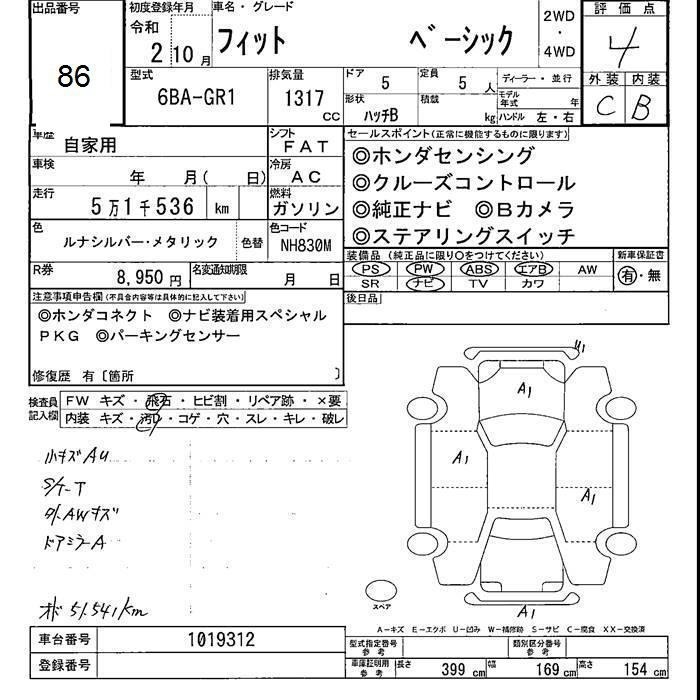 出品番号
86
初度登録年月
令和
2 10月
車名・グレード
フィット ベーシック
2WD
・
4WD
評価点
4
外装 内装
C B
型式
6BA-GR1
排気量
1317
cc
ドア
5
定員
5 人
形状
ハッチB
積載
kg
ディーラー・並行
モデル年式 年
ハンドル 左・右
車歴
自家用
シフト
FAT
車検
年 月( 日)
冷房
AC
走行
5万1千536 km
燃料
ガソリン
色
ルナシルバー・メタリック
色替
色コード
NH830M
R券
8,950円
名変通知期限
月 日
セールスポイント(正常に機能するものに限ります)
◎ホンダセンシング
◎クルーズコントロール
◎純正ナビ ◎Bカメラ
◎ステアリングスイッチ
装備品(純正品に限り○をつけてください)
PS PW ABS エアB AW
SR ナビ TV カワ
新車保証書
有・無
後日品
注意事項申告欄(不具合内容等は具体的に記入して下さい)
◎ホンダコネクト ◎ナビ装着用スペシャル
PKG ◎パーキングセンサー
修復歴 有〔箇所 〕
検査員
記入欄
FW キズ・飛石・ヒビ割・リペア跡・×要
内装 キズ・汚レ・コゲ・穴・スレ・キレ・破レ
小キズAU
S/-T
外AWキズ
ドアミラーA
オド51,541km
U1
A1
A1
A1
A1
スペア
A-キズ E-エクボ U-凹み W-補修跡 S-サビ C-腐食 XX-交換済
車台番号
1019312
登録番号
型式指定番号
参考
類別区分番号
参考
車庫証明用
参考
長さ 399 cm 幅 169 cm 高さ 154 cm